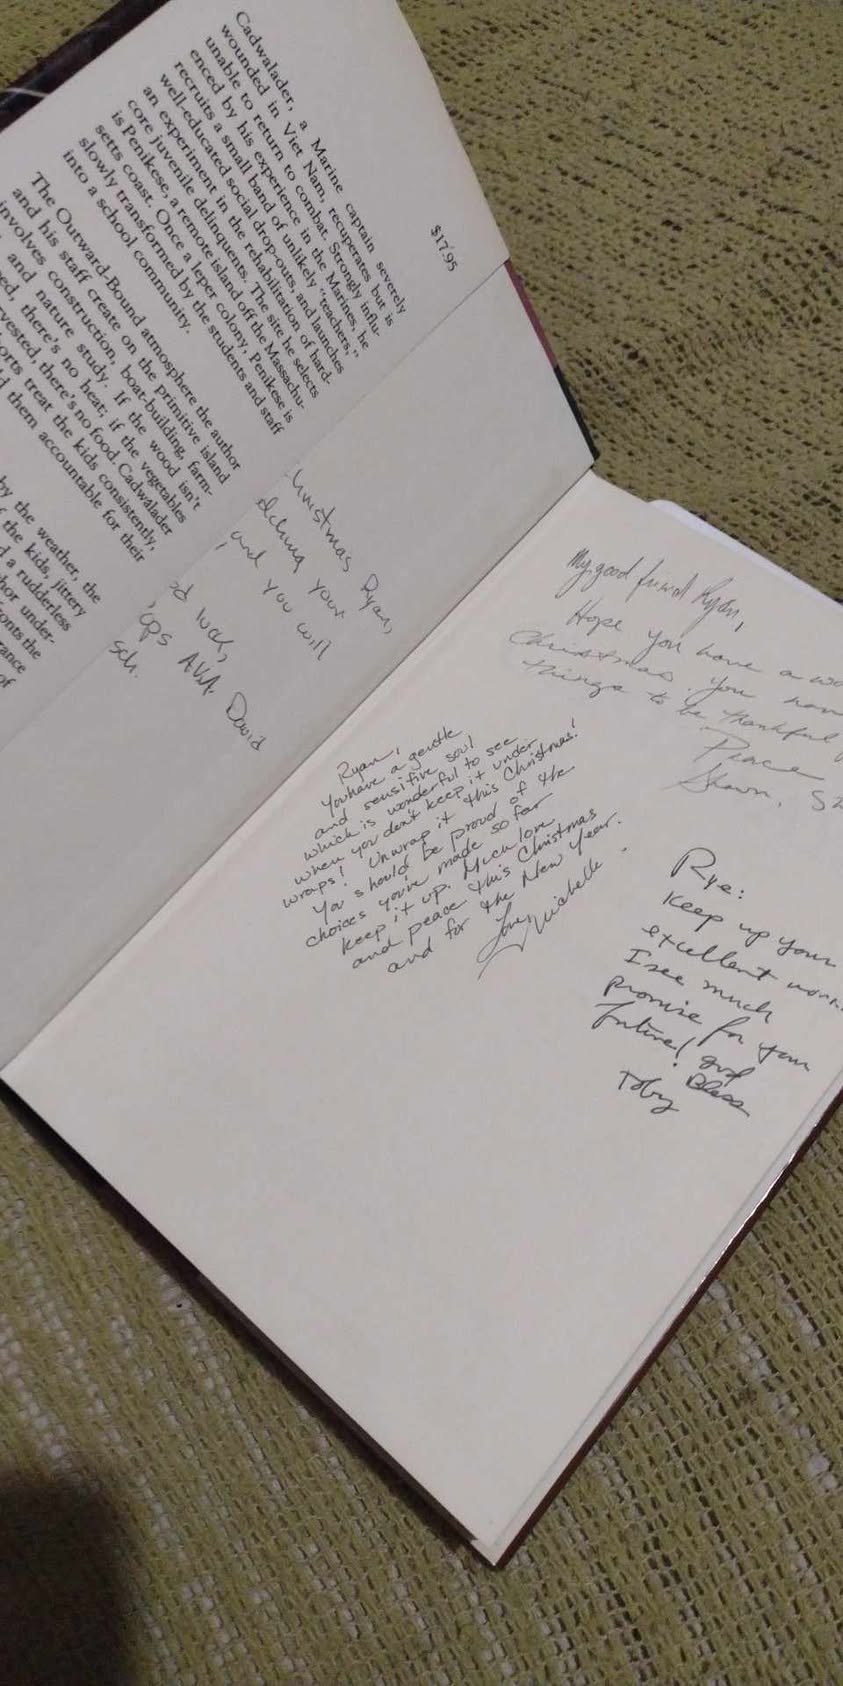 $17.95
Cadwalader, a Marine captain severely
wounded in Viet Nam, recuperates but is
unable to return to combat. Strongly influ-
enced by his experience in the Marines, he
recruits a small band of unlikely "teachers,"
well-educated social drop-outs, and launches
an experiment in the rehabilitation of hard-
core juvenile delinquents. The site he selects
is Penikese, a remote island off the Massachu-
setts coast. Once a leper colony, Penikese is
slowly transformed by the students and staff
into a school community.
The Outward-Bound atmosphere the author
and his staff create on the primitive island
involves construction, boat-building, farm-
and nature study. If the wood isn't
there's no heat; if the vegetables
there's no food. Cadwalader
treat the kids consistently,
them accountable for their
by the weather, the
the kids, jittery
a rudderless
under-
the
of
Christmas Ryan,
your
and you will
David
My good friend Ryan,
Hope you have a
Christmas. you
things to be thankful
Peace
Shawn,
Ryan,
You have a gentle
and sensitive soul
which is wonderful to see
when you don't keep it under
wraps! Unwrap it this Christmas!
You should be proud of the
choices you've made so far
keep it up. Much love
and peace this Christmas
and for the New Year.
Love,
Michelle
Rye:
Keep up your
excellent
I see much
promise for your
future! God
Bless
Toby